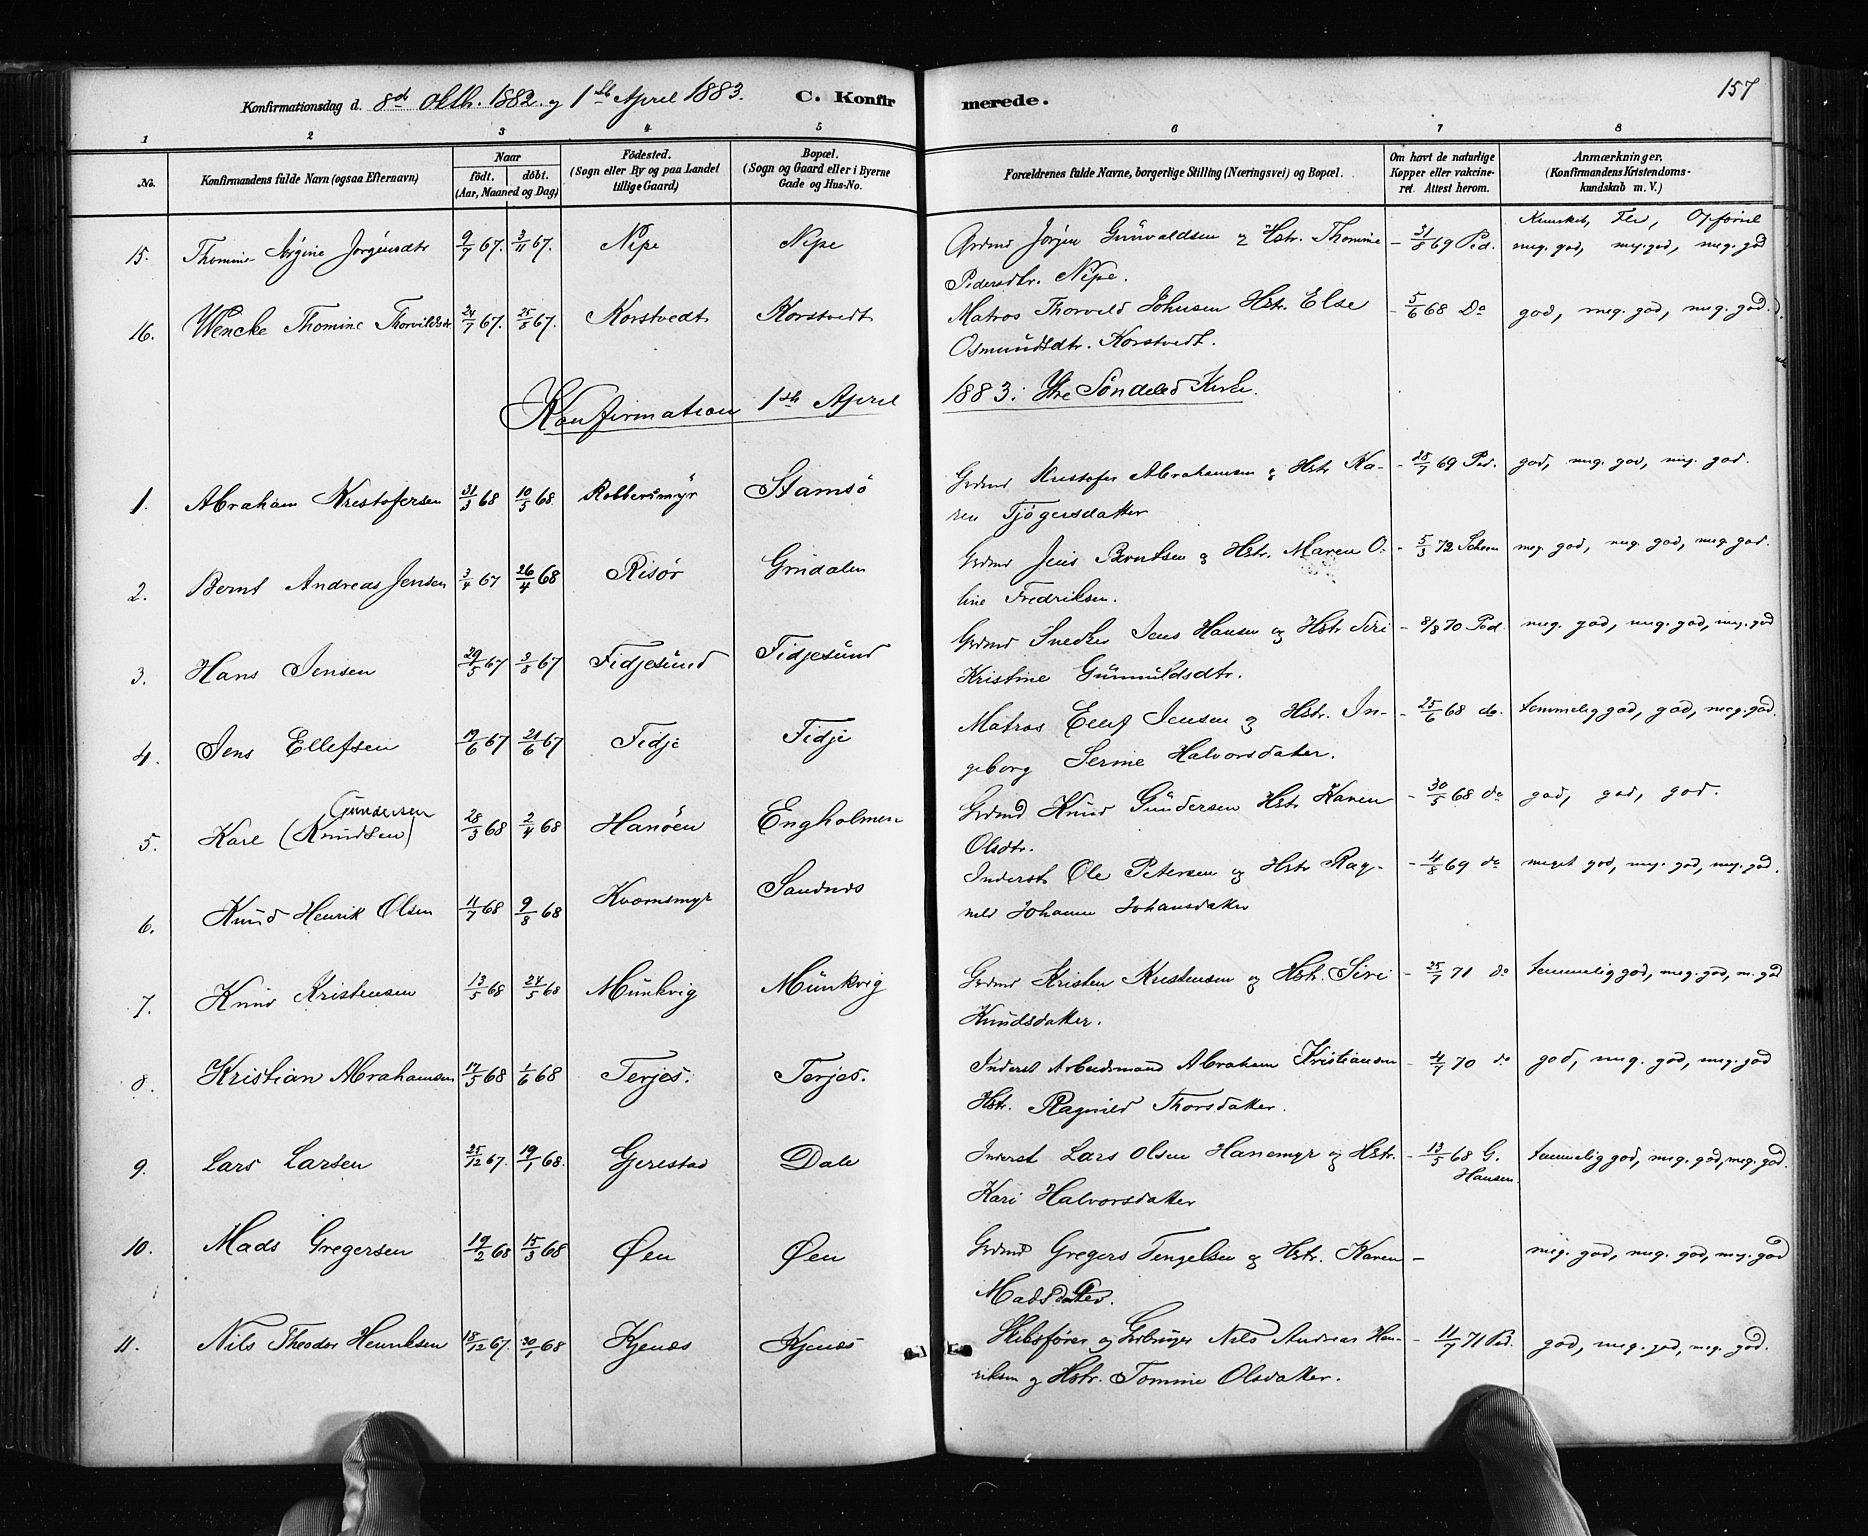 Konfirmationsdag d. 8d Oktb. 1882 og 1ste April 1883. C. Konfirmerede. 157
1 2 3 4 5 6 7 8
No. Konfirmandens fulde Navn (ogsaa Efternavn) Naar födt. döbt. (Aar, Maaned og Dag) Födested. (Sogn eller By og paa Landet tillige Gaard) Bopæl. (Sogn og Gaard eller i Byerne Gade og Hus-No. Forældrenes fulde Navne, borgerlige Stilling (Næringsvei) og Bopæl. Om havt de naturlige Kopper eller vakcineret. Attest herom. Anmærkninger. (Konfirmandens Kristendomskundskab m. V.)
Kunskab, Flid, Opførsel
15. Thomine Jørgine Jørgensdtr 9/7 67. 3/11 67. Nipe Nipe Grdmd Jørgen Gunvaldsen og Hstr. Thomine - 31/8 69 Ped. meg. god, meg. god, meg. god
Pedersdtr. Nipe.
16. Wencke Thomine Thorvildsdtr 24/7 67. 25/8 67. Korstvedt Korstvedt Matros Thorvild Johnsen Hstr. Else - 5/6 68 Do god, meg. god, meg. god.
Osmundsdtr. Korstvedt.
Konfirmation 1ste April 1883. Ytre Søndeled Kirke.
1. Abraham Kristofersen 31/3 68 10/5 68. Robbersmyr Stamsø Grdmd Kristofer Abrahamsen og Hstr Ka- - 28/7 69 Ped. god, meg. god, meg. god.
ren Tjøgersdatter
2. Bernt Andreas Jensen 3/4 67 26/4 68 Risør Grndalen Grdmd Jens Berntsen og Hstr. Maren O- - 5/3 72 meg. god, meg. god, meg. god.
line Fredriksen.
3. Hans Jensen 29/5 67 3/8 67 Fidjesund Fidjesund Grdmd Snedker Jens Hansen og Hstr Siri - 8/8 70 Ped. meg. god, meg. god, meg. god
Kristine Gunnuldsdtr.
4. Jens Ellefsen 19/6 67 21/6 67 Fidje Fidje Matros Ellef Jensen og Hstr. In- - 25/6 68 do. temmelig god, god, meg. god.
geborg Serine Halvorsdatter.
Gundersen
5. Karl (Knudsen) 28/3 68 2/4 68 Hanøen Engholmen Grdmd Knud Gundersen Hstr Karen - 30/5 68 do god, god, god.
Olsdtr.
6. Knud Henrik Olsen 11/7 68 9/8 68 Kvernsmyr Sandnæs Inderst Ole Petersen og Hstr Rag- - 4/8 69 do meget god, meg. god, meg. god.
nild Johanne Johansdatter
7. Knud Kristensen 13/5 68 24/5 68 Munkvig Munkvig Grdmd Kristen Kristensen og Hstr. Siri - 25/7 71 do temmelig god, meg. god, m. god
Knudsdatter.
8. Kristian Abrahamsen 17/5 68 1/6 68 Terjes. Terjes. Inderst Arbeidsmand Abraham Kristiansen - 4/7 70 do god, meg. god, meg. god
Hstr. Ragnild Thorsdatter.
9. Lars Larsen 25/12 67. 19/1 68. Gjerestad Dale Inderst Lars Olsen Hanemyr og Hstr. - 13/5 68 G. Hansen. temmelig god, meg. god, meg. god.
Kari Halvorsdatter
10. Mads Gregersen 19/2 68 15/3 68 Øen Øen Grdmd Gregers Tengelsen og Hstr. Karen - meg. god, meg. god, meg. god
Madsdatter.
11. Nils Theodor Henriksen 18/12 67. 30/1 68 Kjenæs Kjenæs Skibsfører og Grdbruger Nils Andreas Hen- - 11/7 71 Ped. god, meg. god, meg. god.
riksen og Hstr. Tomine Olsdatter.